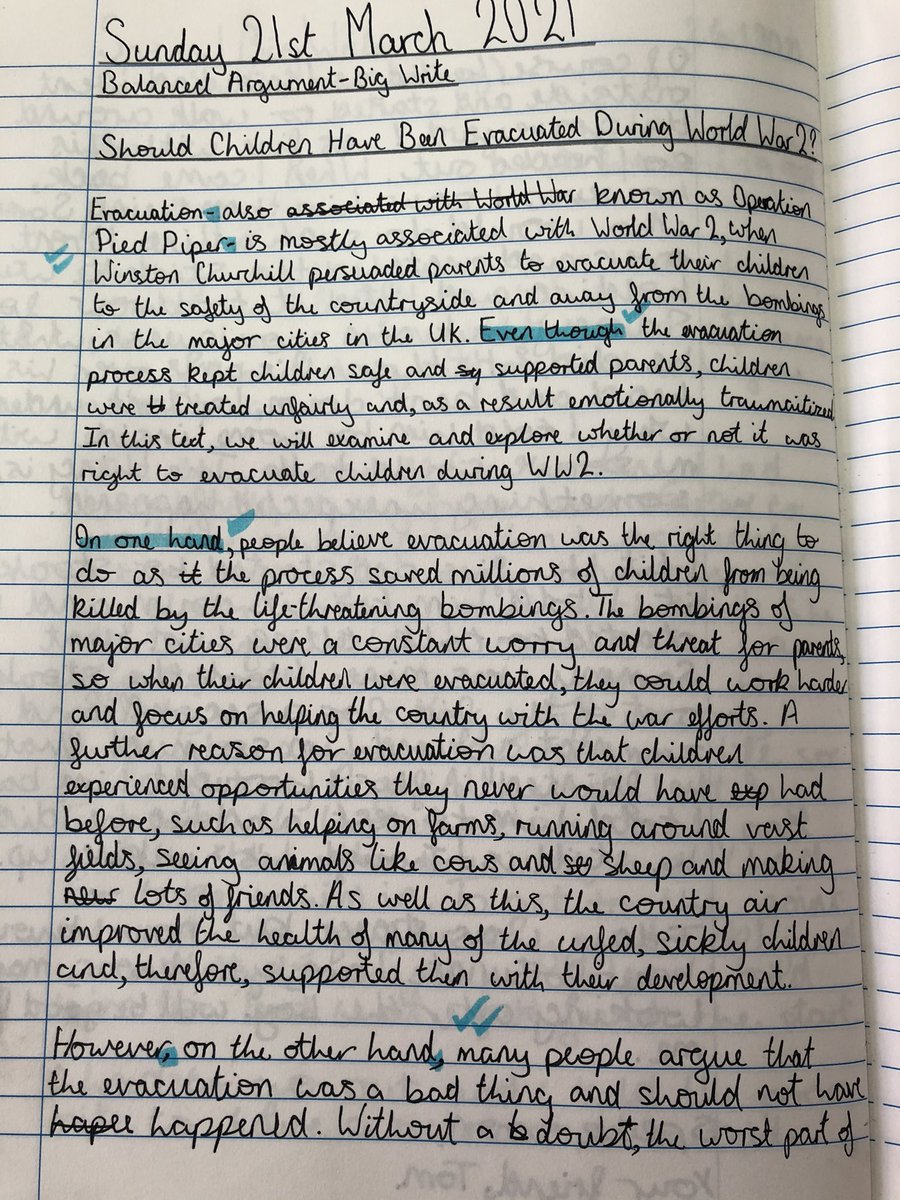 Sunday 21st March 2021
Balanced Argument-Big Write
Should Children Have Been Evacuated During World War 2?
Evacuation- also associated with World War known as Operation
Pied Piper- is mostly associated with World War 2, when
Winston Churchill persuaded parents to evacuate their children
to the safety of the countryside and away from the bombings
in the major cities in the UK. Even though the evacuation
process kept children safe and sy supported parents, children
were tt treated unfairly and, as a result emotionally traumaitized.
In this text, we will examine and explore whether or not it was
right to evacuate children during WW2.
On one hand, people believe evacuation was the right thing to
do as it the process saved millions of children from being
killed by the life-threatening bombings. The bombings of
major cities were a constant worry and threat for parents,
so when their children were evacuated, they could work harder
and focus on helping the country with the war efforts. A
further reason for evacuation was that children
experienced opportunities they never would have exp had
before, such as helping on farms, running around vast
fields, seeing animals like cows and sey sheep and making
new lots of friends. As well as this, the country air
improved the health of many of the unfed, sickly children
and, therefore, supported then with their development.
However, on the other hand, many people argue that
the evacuation was a bad thing and should not have
hapee happened. Without a b doubt, the worst part of
Your friend, Tom